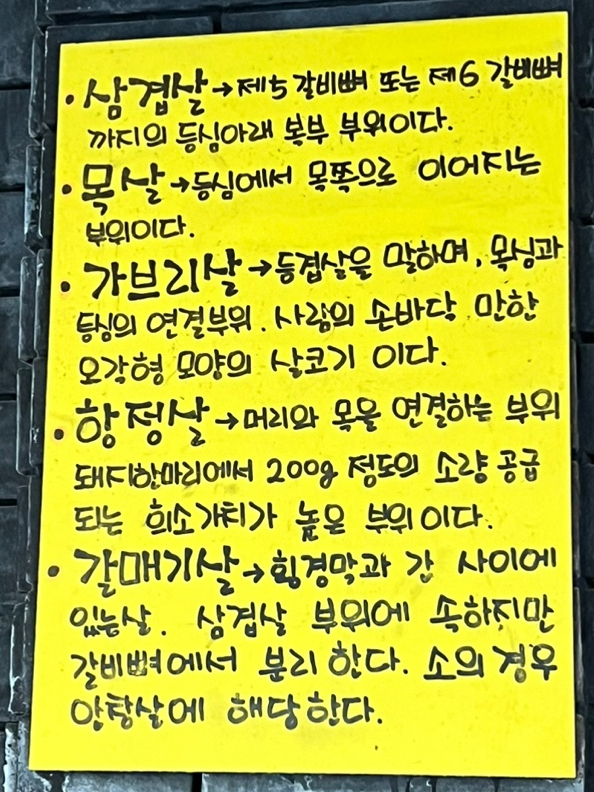 • 삼겹살→제5갈비뼈 또는 제6 갈비뼈
까지의 등심아래 복부 부위이다.
• 목살→등심에서 목쪽으로 이어지는
부위이다.
• 가브리살→등겹살을 말하며, 목심과
등심의 연결부위. 사람의 손바닥 만한
오각형 모양의 살코기 이다.
• 항정살→머리와 목을 연결하는 부위
돼지한마리에서 200g 정도의 소량 공급
되는 희소가치가 높은 부위이다.
• 갈매기살→횡경막과 간 사이에
있는살. 삼겹살 부위에 속하지만
갈비뼈에서 분리 한다. 소의 경우
안창살에 해당한다.